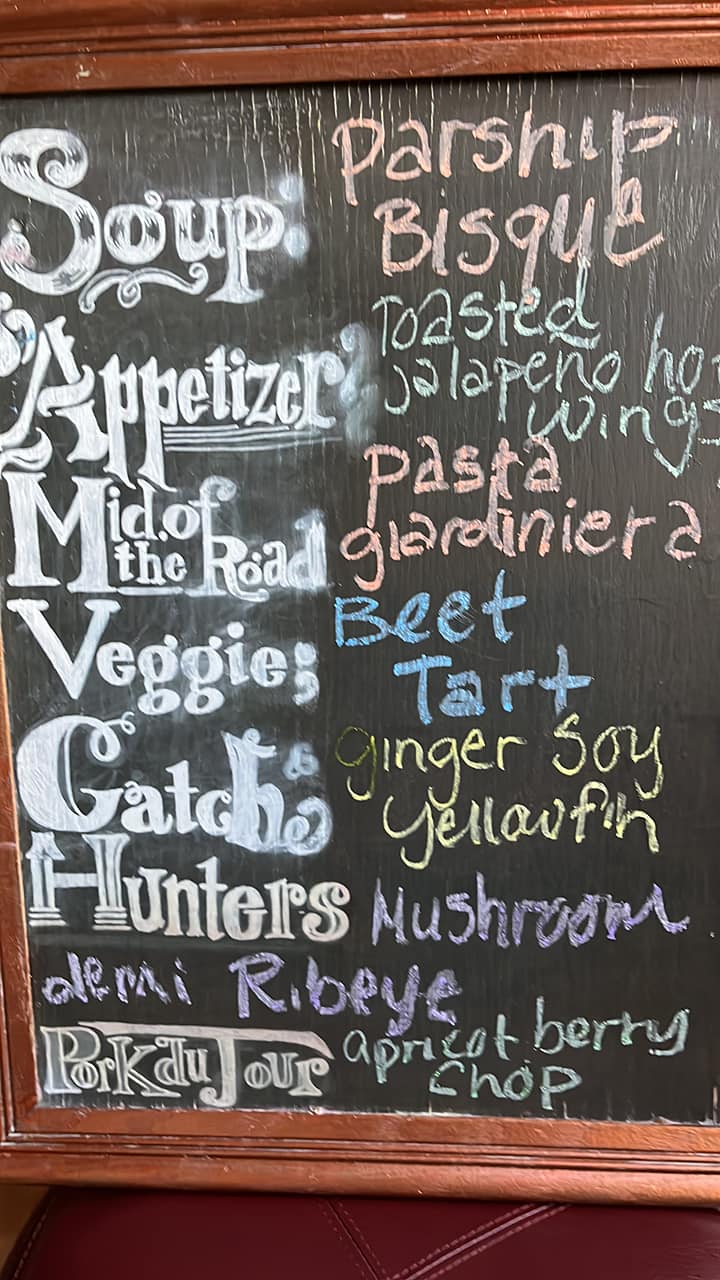 Soup: Parsnip
Bisque
Appetizer: Toasted
jalapeño
wings
Mid.of
the Road
Pasta
giardiniera
Veggie: Beet
Tart
Catch: ginger soy
yellowfin
Hunters Mushroom
demi Ribeye
Pork du Jour apricot berry
chop